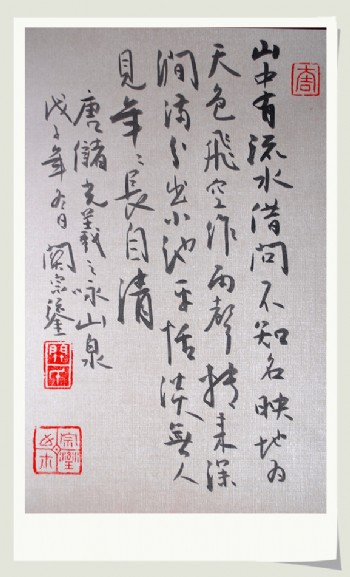 山中有流水借問不知名映地為
天色飛空作雨聲轉来深
澗滿分出小池平恬淡無人
見年々長自清
唐儲光羲之咏山泉
戊子年冬日 関宗